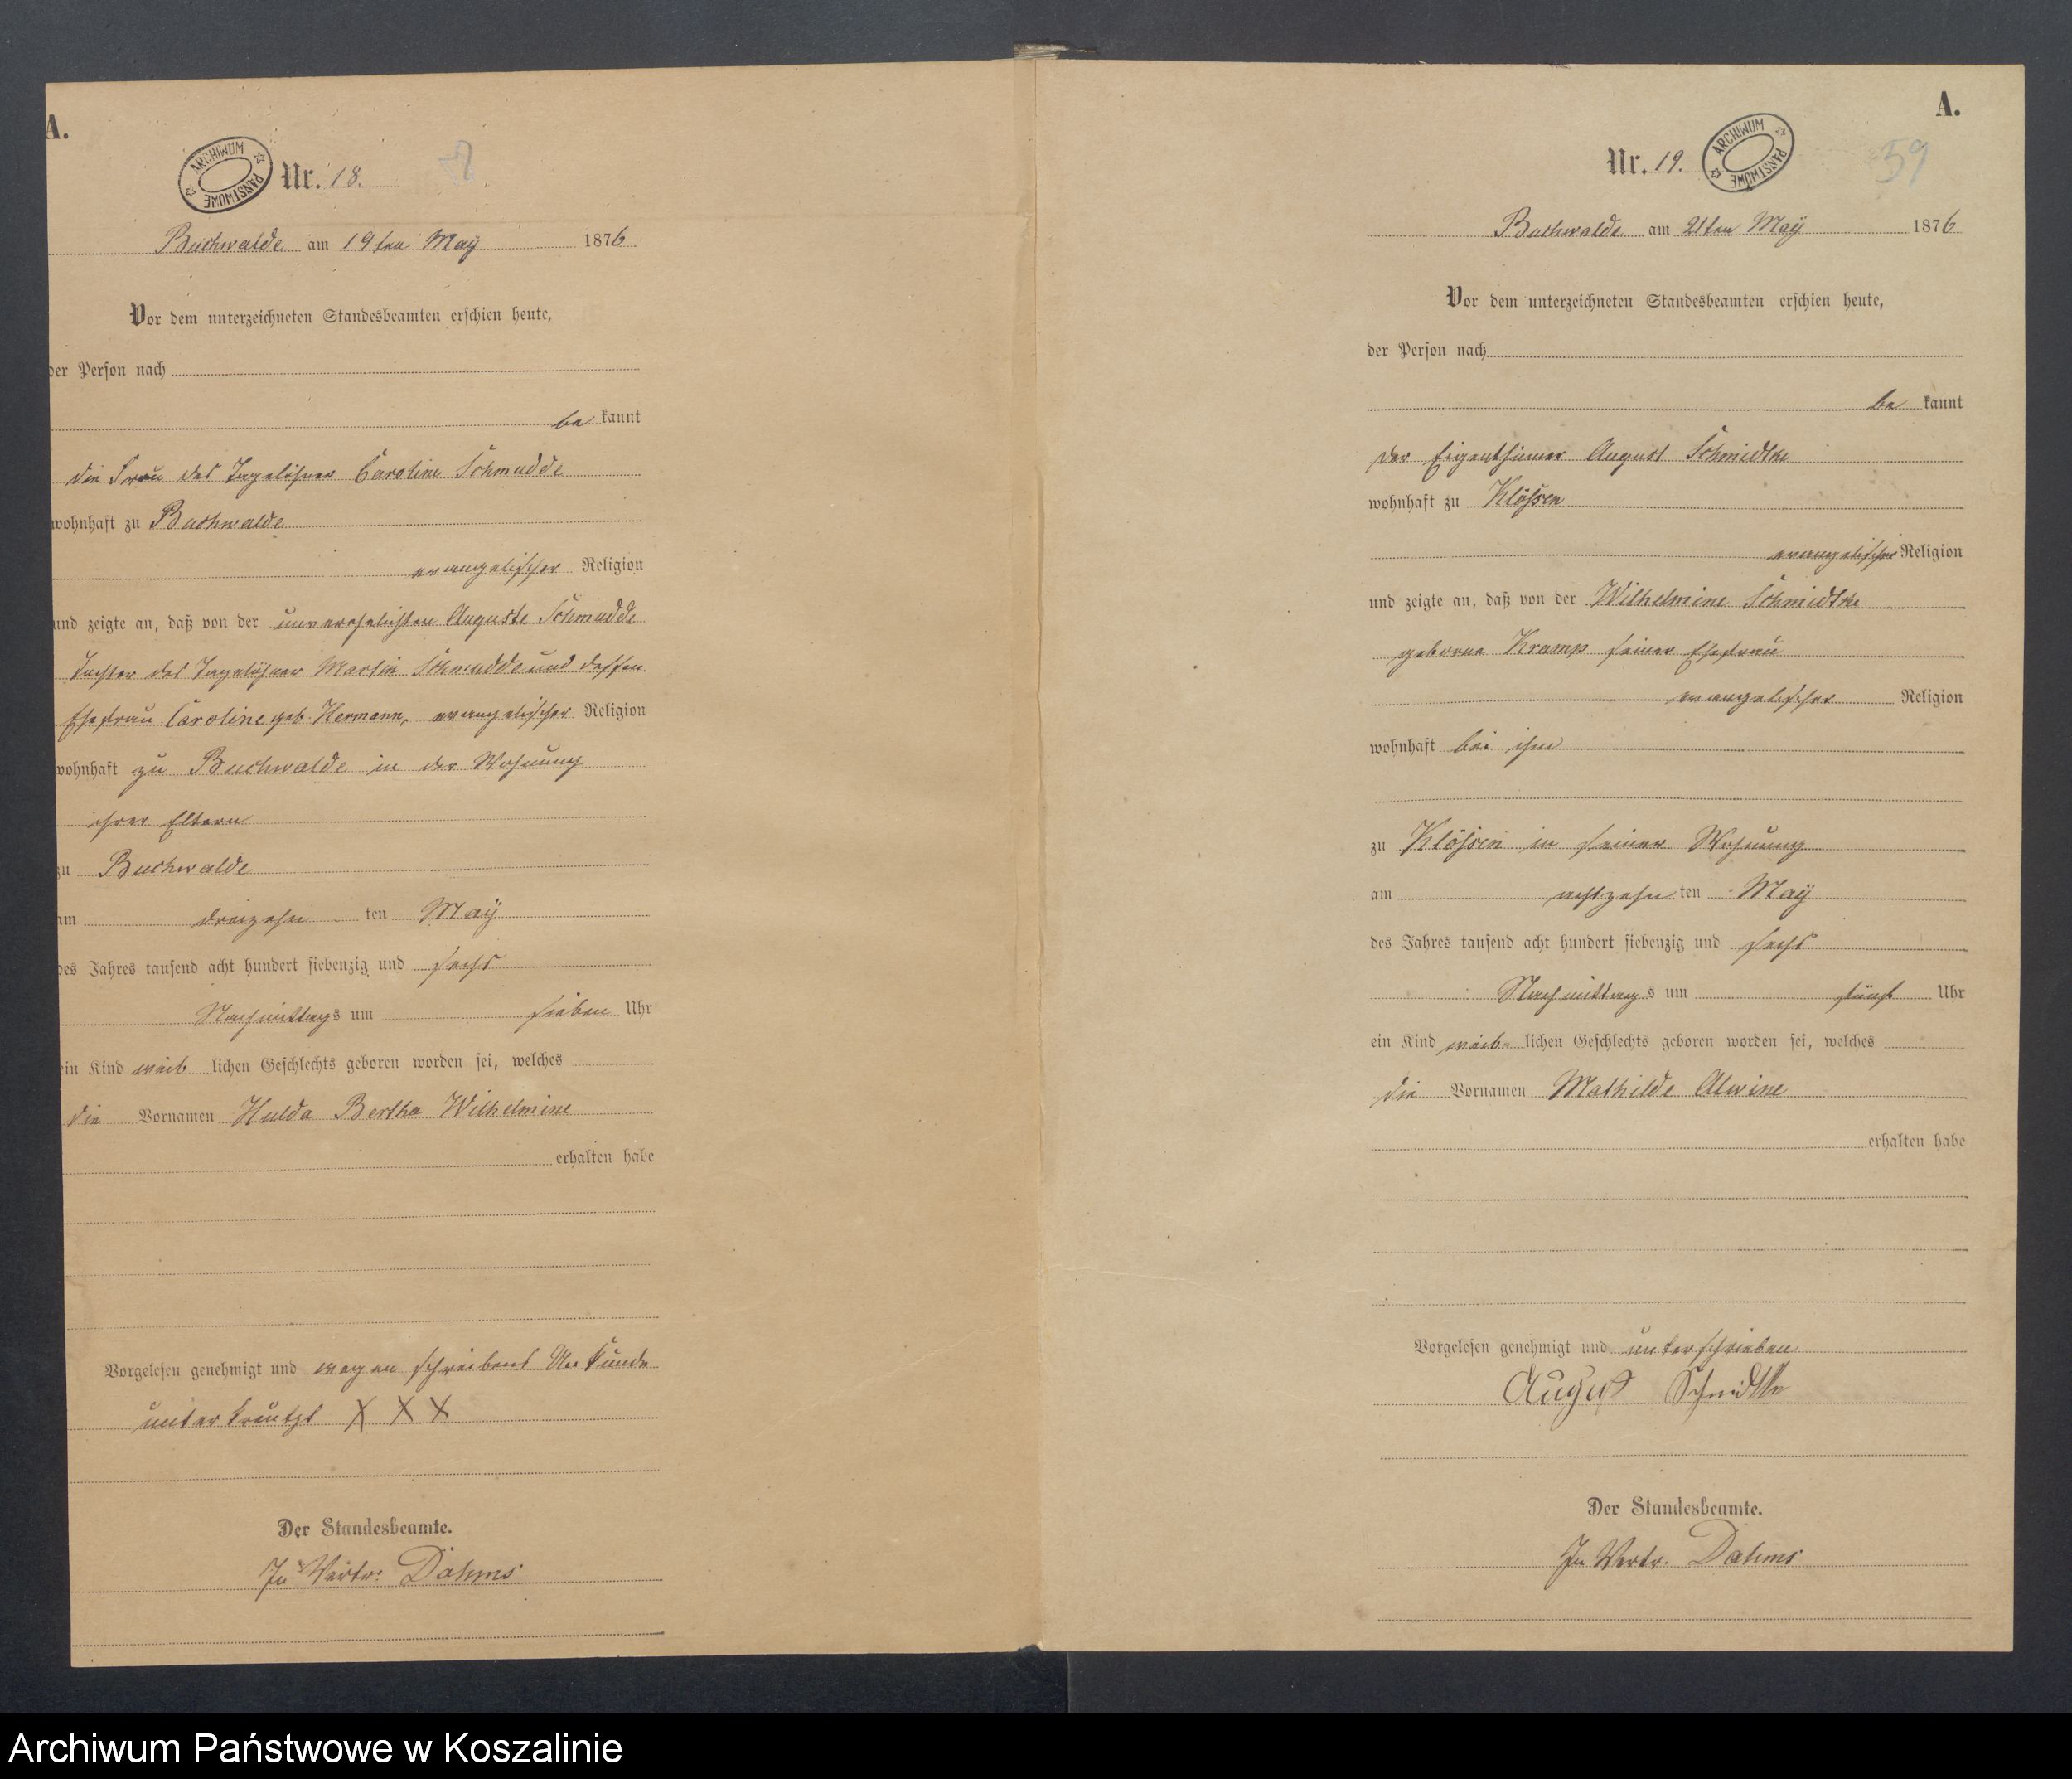 A.
ARCHIWUM PAŃSTWOWE
Nr. 18.
Buchwalde am 19ten May 1876
Vor dem unterzeichneten Standesbeamten erschien heute,
der Person nach
be kannt
die Frau des Tagelöhner Caroline Schmudde
wohnhaft zu Buchwalde
evangelischer Religion
und zeigte an, daß von der unverehelichten Auguste Schmudde
Tochter des Tagelöhner Martin Schmudde und dessen
Ehefrau Caroline geb. Hermann, evangelischer Religion
wohnhaft zu Buchwalde in der Wohnung
ihrer Eltern
zu Buchwalde
am dreizehn ten May
des Jahres tausend acht hundert siebenzig und sechs
Nachmittags um sieben Uhr
ein Kind weib lichen Geschlechts geboren worden sei, welches
die Vornamen Hulda Bertha Wilhelmine
erhalten habe
Vorgelesen genehmigt und wegen schreibens Unkunde
unterkreutzt X X X
Der Standesbeamte.
In Vertr. Dahms
A.
Nr. 19.
ARCHIWUM PAŃSTWOWE
59
Buchwalde am 21ten May 1876
Vor dem unterzeichneten Standesbeamten erschien heute,
der Person nach
be kannt
der Eigenthümer August Schmidtke
wohnhaft zu Klössen
evangelischer Religion
und zeigte an, daß von der Wilhelmine Schmidtke
geborne Kramp seiner Ehefrau
evangelischer Religion
wohnhaft bei ihm
zu Klössen in seiner Wohnung
am achtzehn ten May
des Jahres tausend acht hundert siebenzig und sechs
Nachmittags um fünf Uhr
ein Kind weib lichen Geschlechts geboren worden sei, welches
die Vornamen Mathilde Alwine
erhalten habe
Vorgelesen genehmigt und unterschrieben
August Schmidtke
Der Standesbeamte.
In Vertr. Dahms
Archiwum Państwowe w Koszalinie